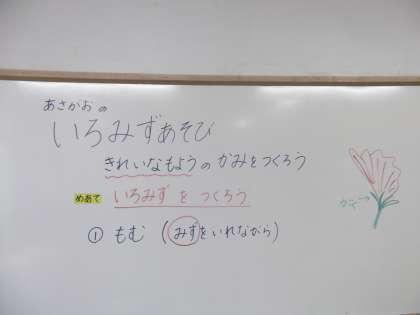 あさがおの
いろみずあそび
きれいなもようのかみをつくろう
めあて いろみずをつくろう
① もむ (みずをいれながら)